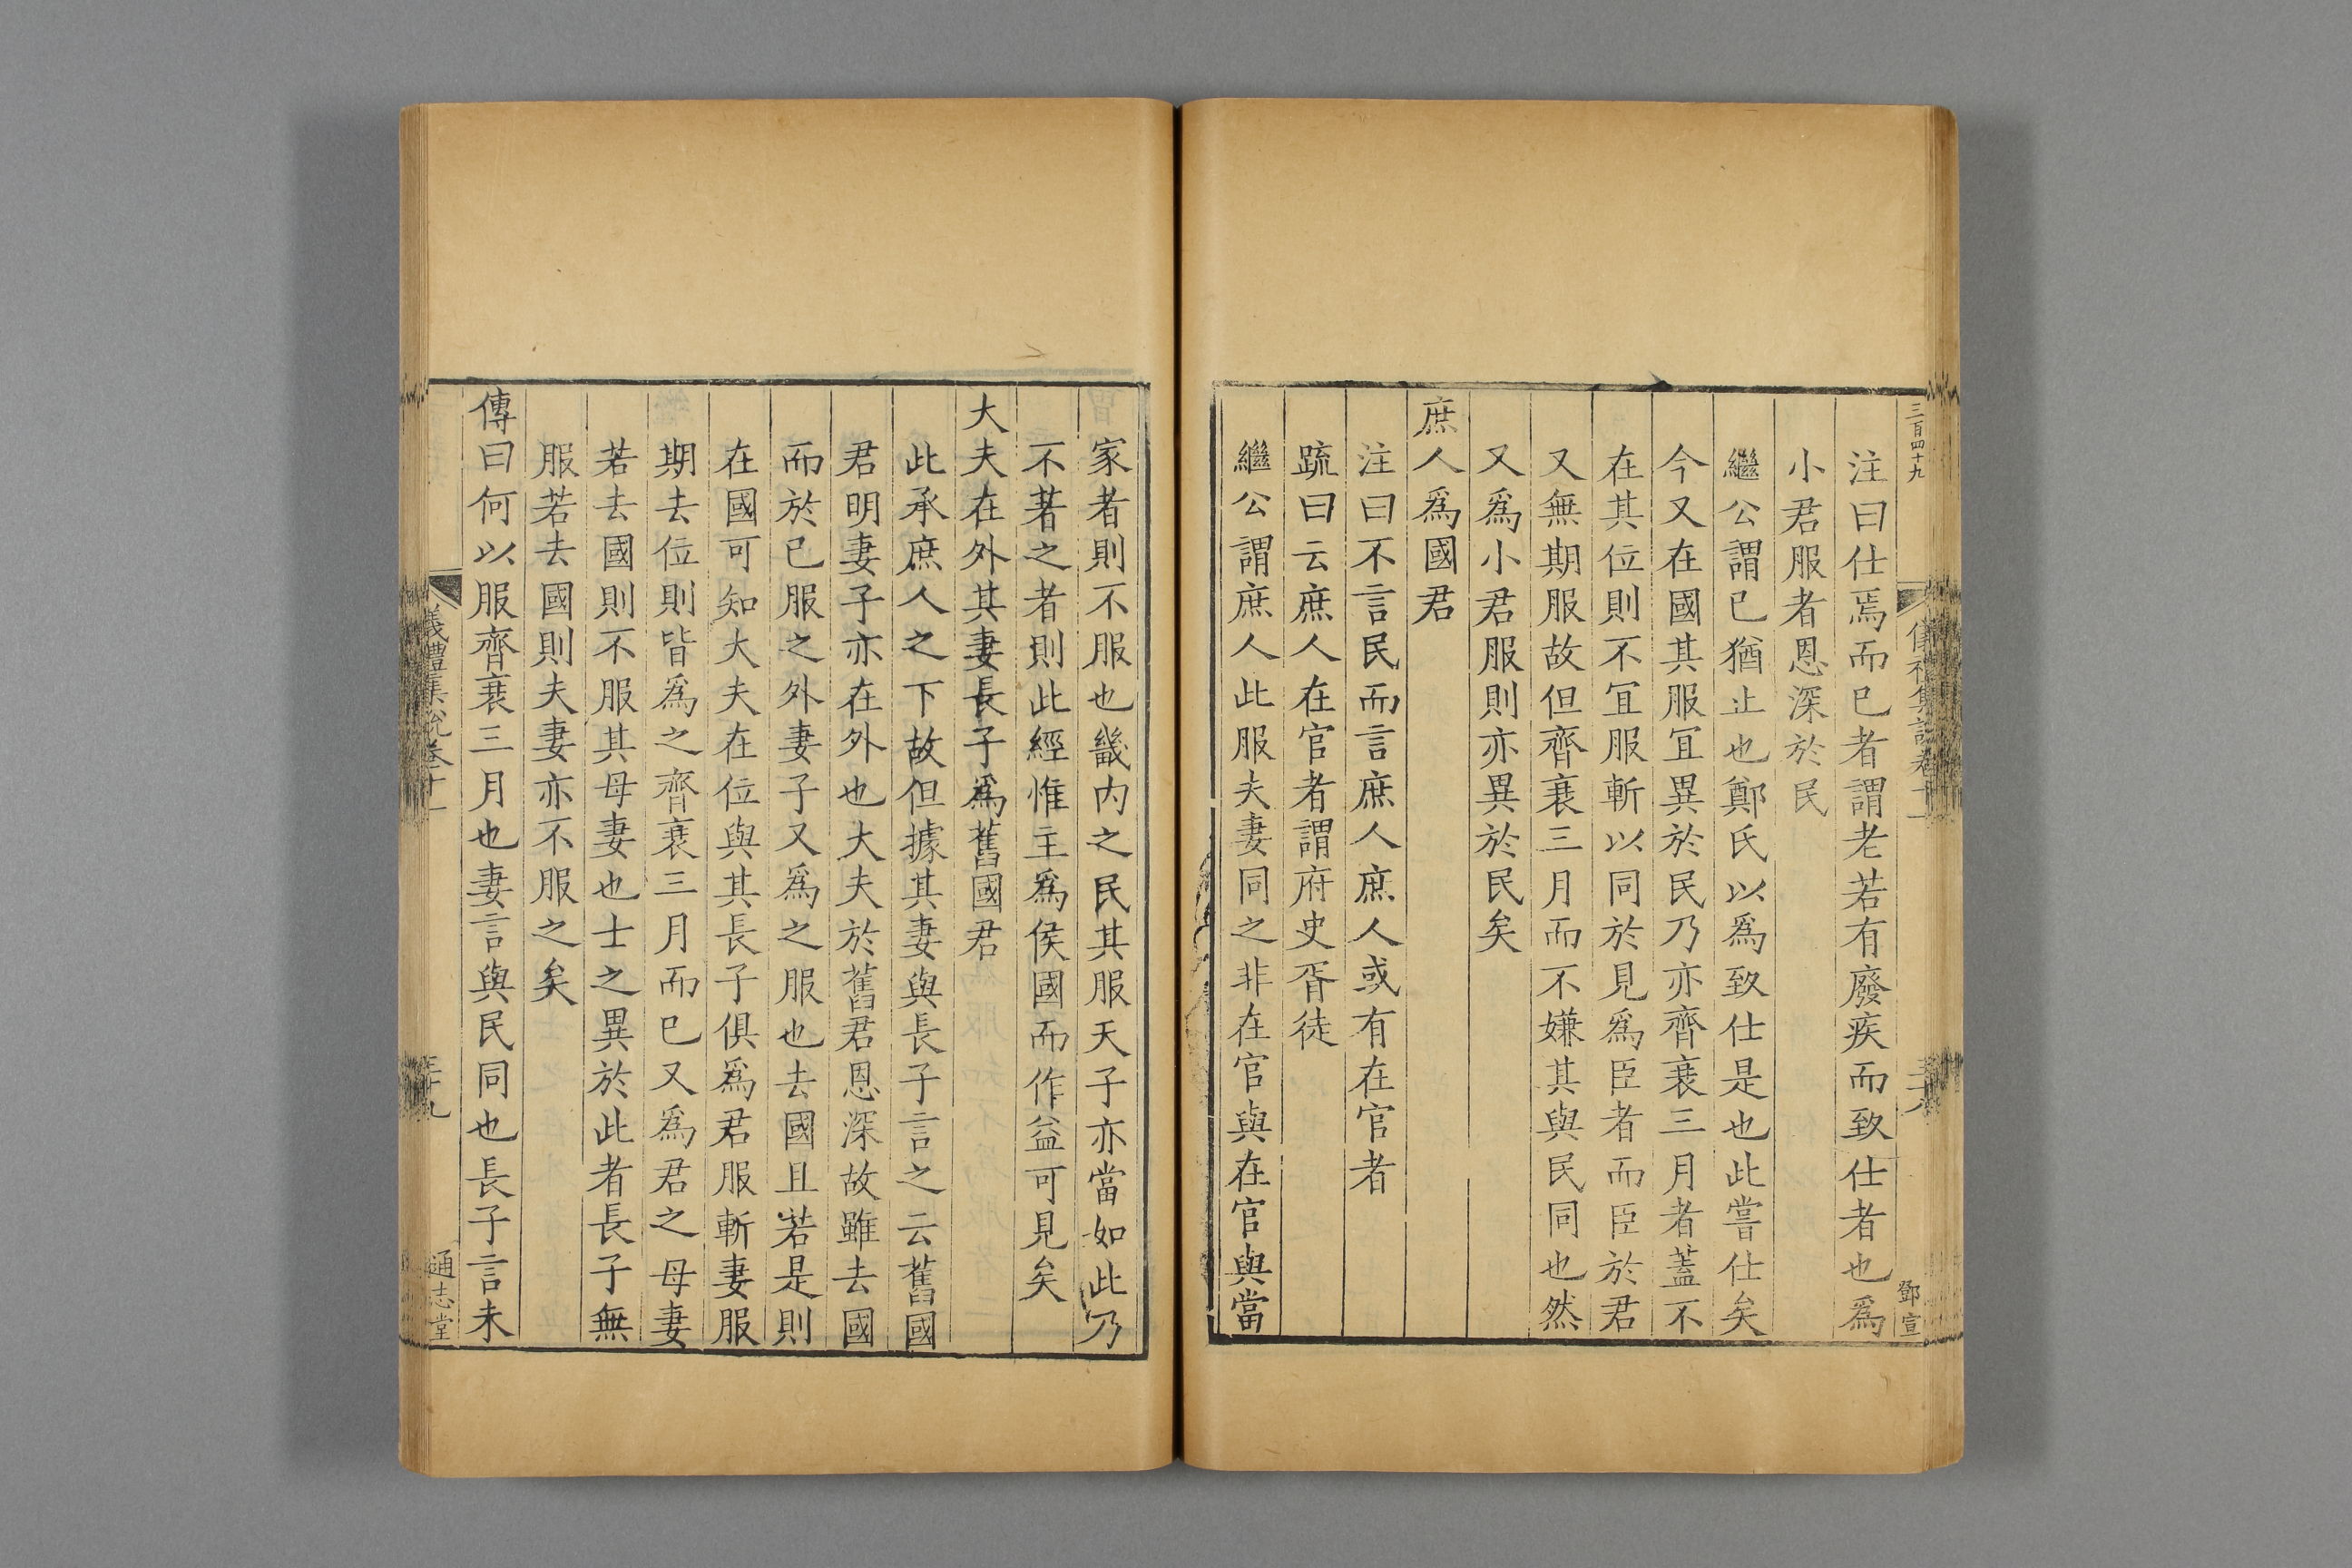 三百四十九
鄧宣
注曰仕焉而已者謂老若有廢疾而致仕者也爲
小君服者恩深於民
繼公謂已猶止也鄭氏以爲致仕是也此嘗仕矣
今又在國其服宜異於民乃亦齊衰三月者蓋不
在其位則不宜服斬以同於見爲臣者而臣於君
又無期服故但齊衰三月而不嫌其與民同也然
又爲小君服則亦異於民矣
庶人爲國君
注曰不言民而言庶人庶人或有在官者
疏曰云庶人在官者謂府史胥徒
繼公謂庶人此服夫妻同之非在官與在官與當
家者則不服也畿內之民其服天子亦當如此乃
不著之者則此經惟主爲侯國而作益可見矣
大夫在外其妻長子爲舊國君
此承庶人之下故但據其妻與長子言之云舊國
君明妻子亦在外也大夫於舊君恩深故雖去國
而於已服之外妻子又爲之服也去國且若是則
在國可知大夫在位與其長子俱爲君服斬妻服
期去位則皆爲之齊衰三月而已又爲君之母妻
若去國則不服其母妻也士之異於此者長子無
服若去國則夫妻亦不服之矣
傳曰何以服齊衰三月也妻言與民同也長子言未
儀禮集說卷十一
三十九
通志堂